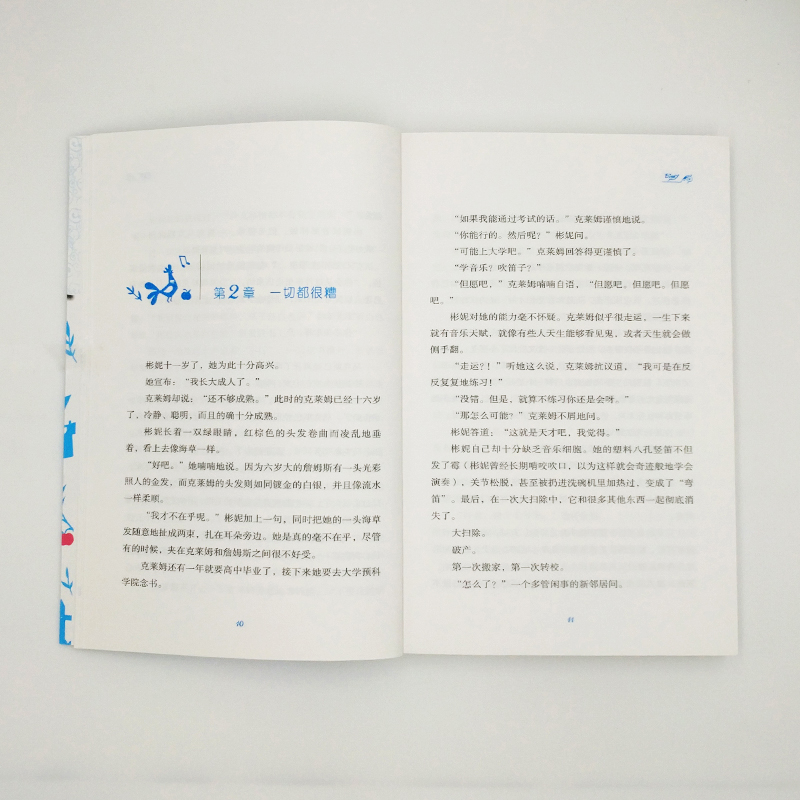 第2章 一切都很糟
彬妮十一岁了,她为此十分高兴。
她宣布:“我长大成人了。”
克莱姆却说:“还不够成熟。”此时的克莱姆已经十六岁
了,冷静、聪明,而且的确十分成熟。
彬妮长着一双绿眼睛,红棕色的头发卷曲而凌乱地垂
着,看上去像海草一样。
“好吧。”她喃喃地说。因为六岁大的詹姆斯有一头光彩
照人的金发,而克莱姆的头发则如同镀金的白银,并且像流水
一样柔顺。
“我才不在乎呢。”彬妮加上一句,同时把她的一头海草
发随意地扯成两束,扎在耳朵旁边。她是真的毫不在乎,尽管
有的时候,夹在克莱姆和詹姆斯之间很不好受。
克莱姆还有一年就要高中毕业了,接下来她要去大学预科
学院念书。
10
“如果我能通过考试的话。”克莱姆谨慎地说。
“你能行的。然后呢?”彬妮问。
“可能上大学吧。”克莱姆回答得更谨慎了。
“学音乐?吹笛子?”
“但愿吧,”克莱姆喃喃自语,“但愿吧。但愿吧。但愿
吧。”
彬妮对她的能力毫不怀疑。克莱姆似乎很走运,一生下来
就有音乐天赋,就像有些人天生能够看见鬼,或者天生就会做
侧手翻。
“走运?!”听她这么说,克莱姆抗议道,“我可是在反
反复复地练习!”
“没错。但是,就算不练习你还是会呀。”
“那怎么可能?”克莱姆不屑地问。
彬妮答道:“这就是天才吧,我觉得。”
彬妮自己却十分缺乏音乐细胞。她的塑料八孔竖笛不但
发了霉(彬妮曾经长期啃咬吹口,以为这样就会奇迹般地学会
演奏),关节松脱,甚至被扔进洗碗机里加热过,变成了“弯
笛”。最后,在一次大扫除中,它和很多其他东西一起彻底消
失了。
大扫除。
破产。
第一次搬家,第一次转校。
“怎么了?”一个多管闲事的新邻居问。
11